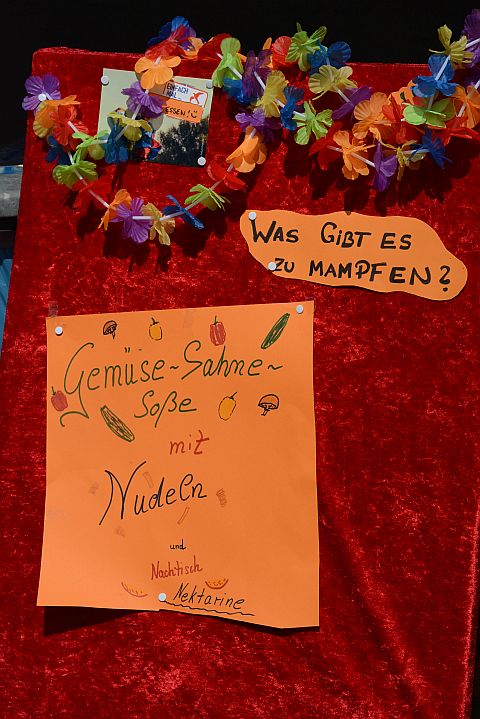 EINFACH
MAL
ESSEN!
WAS GIBT ES
ZU MAMPFEN?
Gemüse~Sahne~
Soße
mit
Nudeln
und
Nachtisch
Nektarine